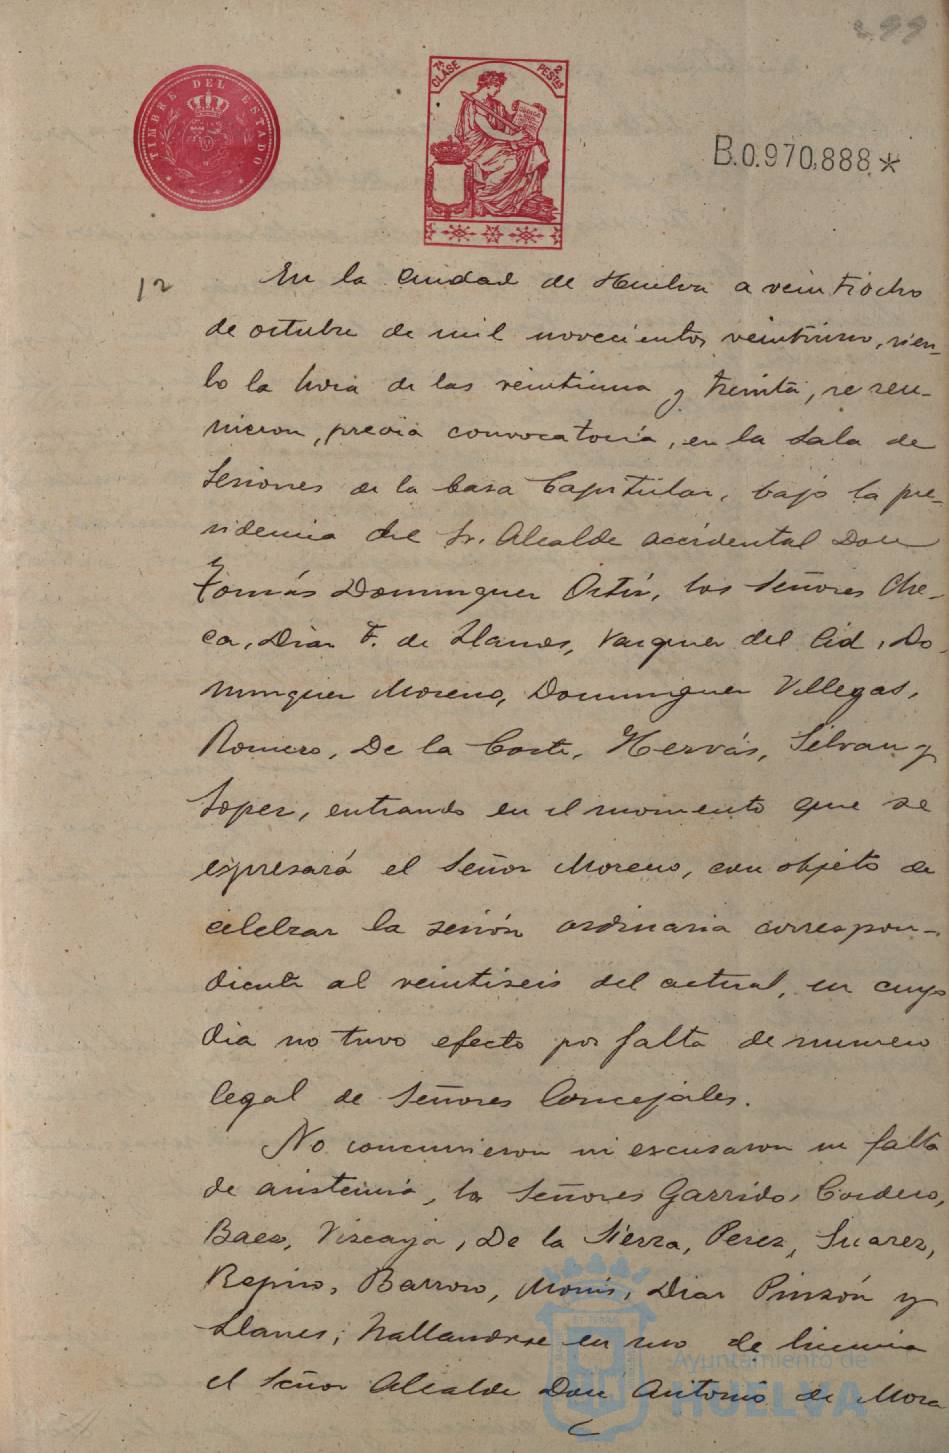 299
TIMBRE DEL ESTADO
7ª CLASE
2 PESTAS
B.0.970,888 *
12
En la Ciudad de Huelva a veintiocho
de octubre de mil novecientos veintiuno, sien-
do la hora de las veintiuna y treinta, se reu-
nieron, previa convocatoria, en la Sala de
Sesiones de la Casa Capitular, bajo la pre-
sidencia del Sr. Alcalde accidental Don
Tomás Dominguez Ortiz, los Señores Che-
ca, Diaz F. de Llanos, Vazquez del Cid, Do-
minguez Moreno, Dominguez Villegas,
Romero, De la Corte, Hervás, Silvan y
Lopez, entrando en el momento que se
espresará el Señor Moreno, con objeto de
celebrar la sesión ordinaria correspon-
diente al veintiseis del actual, en cuyo
dia no tuvo efecto por falta de numero
legal de Señores Concejales.
No concurrieron ni escusaron su falta
de asistencia, los Señores Garrido, Cordero,
Baez, Vizcaya, De la Sierra, Perez, Suarez,
Repiso, Barroso, Monis, Diaz Pinzón y
Llanes; hallandose en uso de licencia
el Señor Alcalde Don Antonio de Mora
Ayuntamiento de
HUELVA